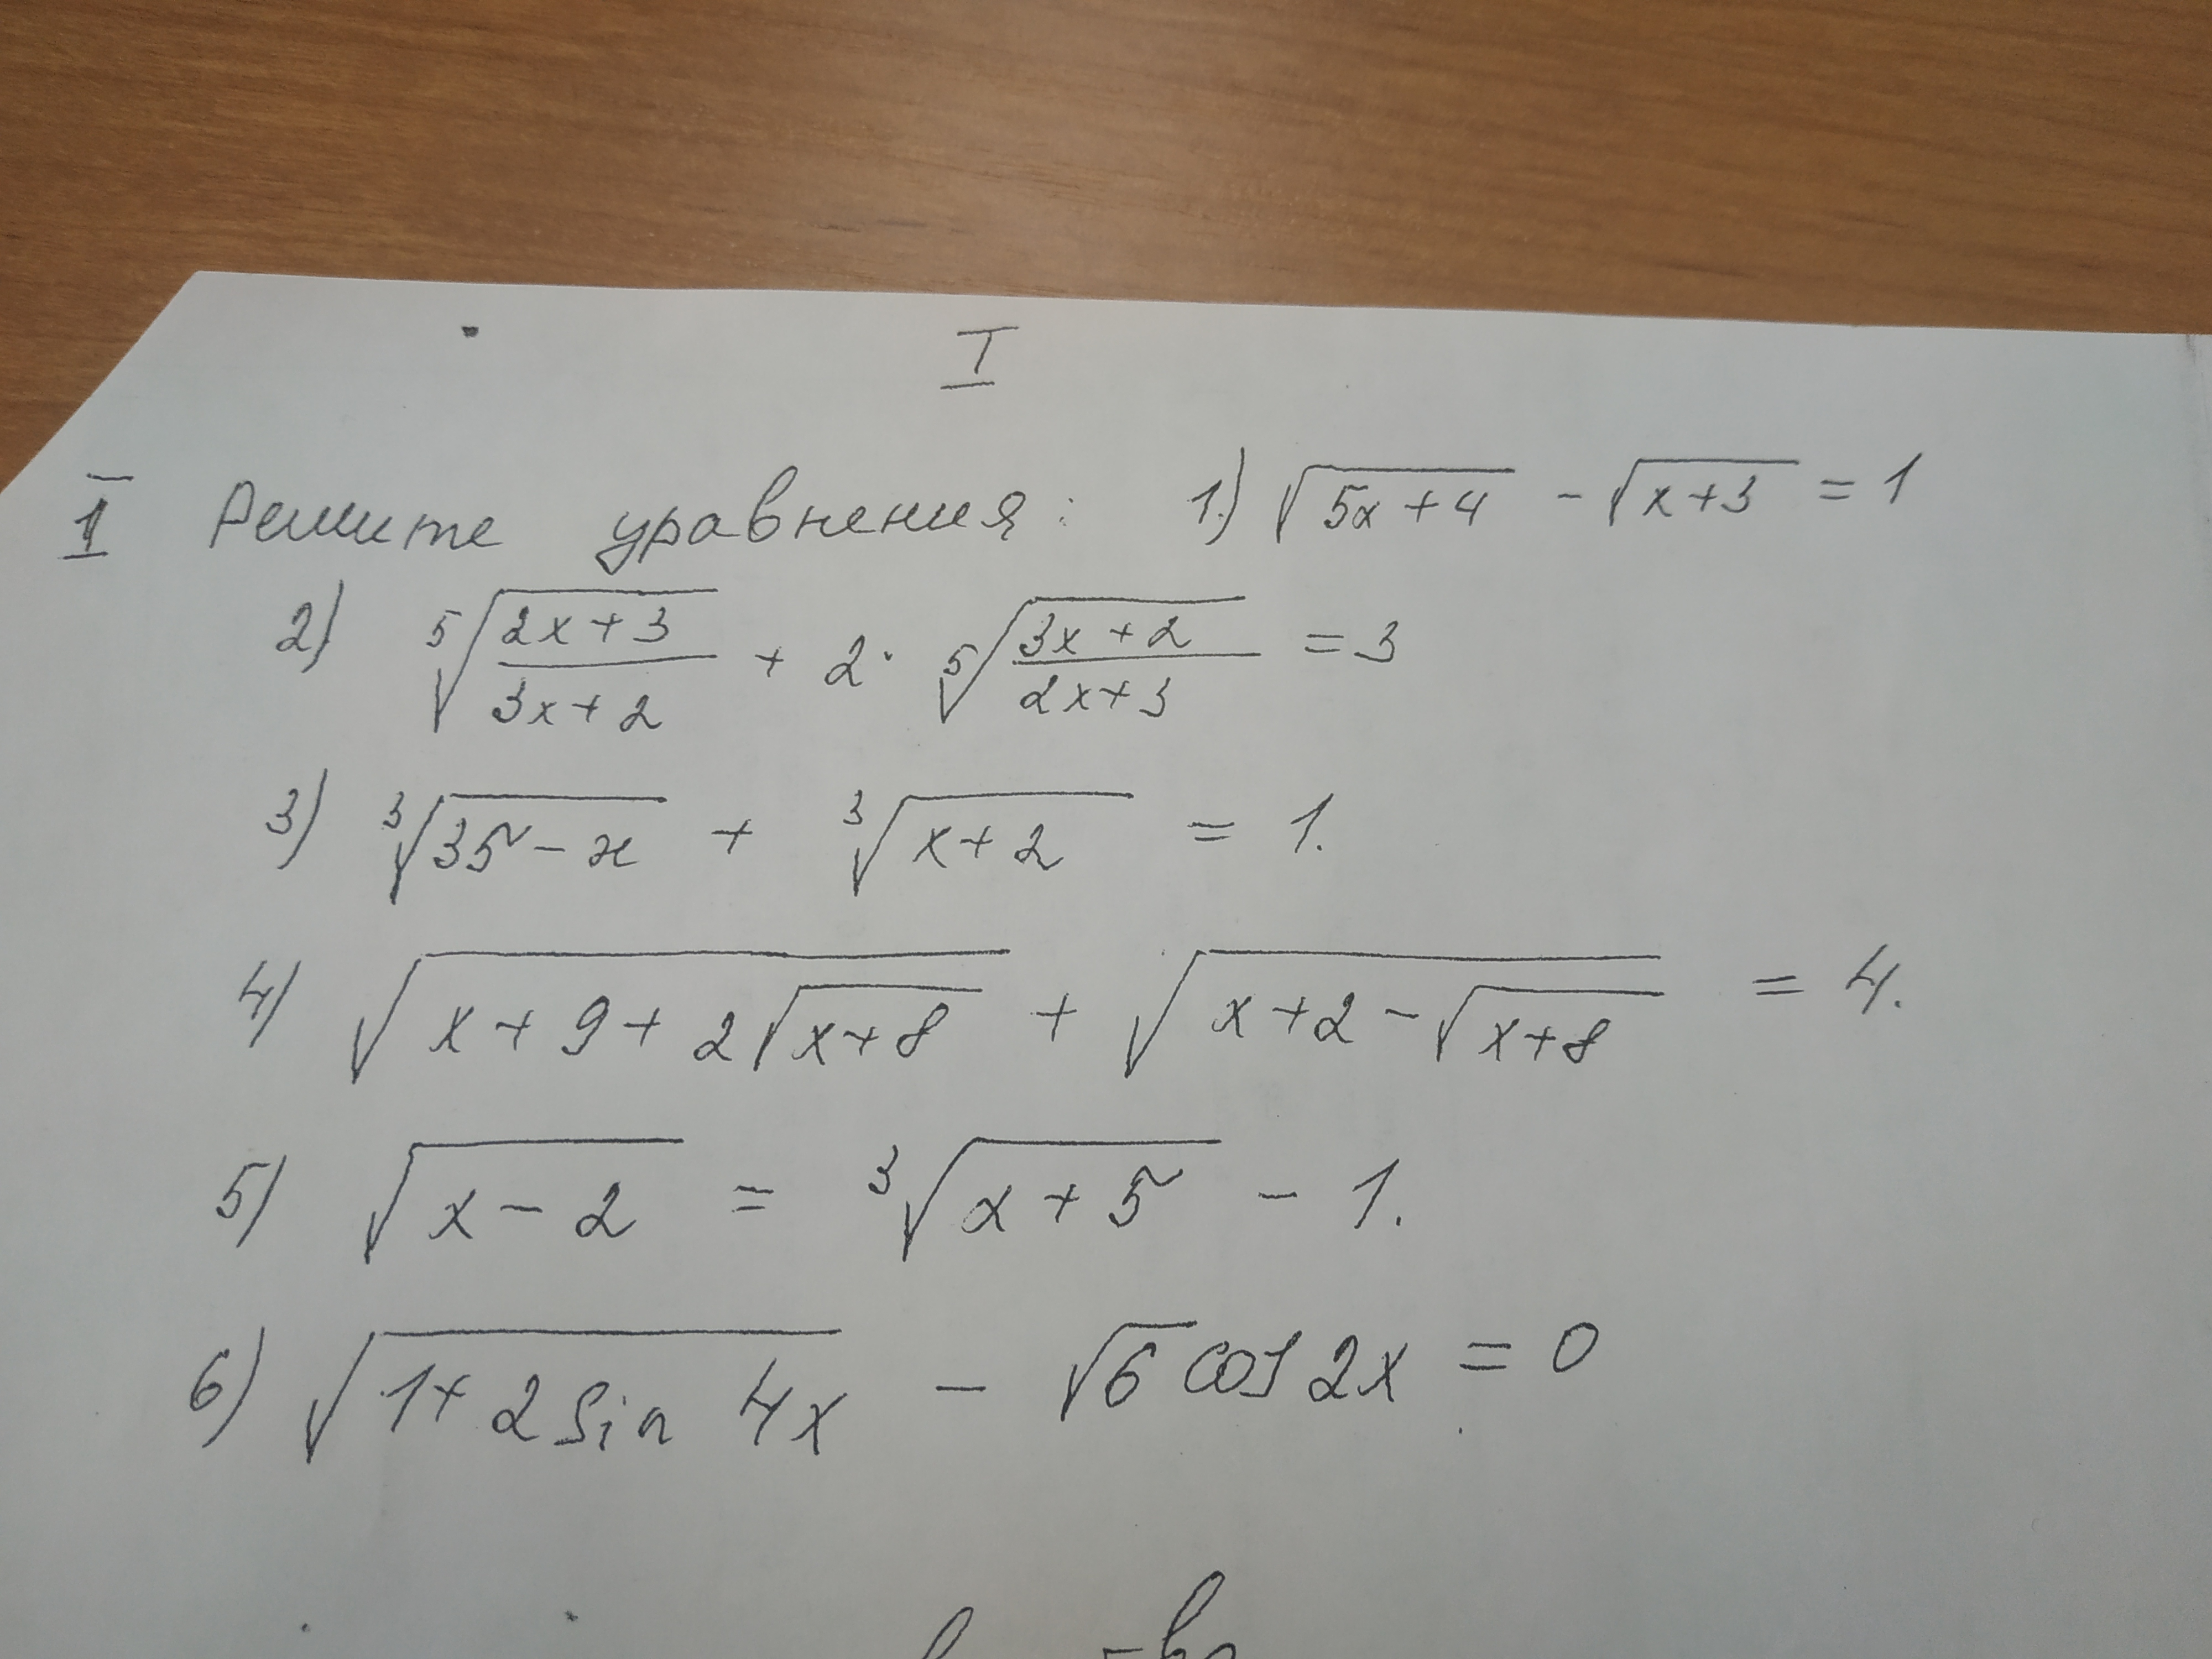 I
I Решите уравнения: 1.) √(5x+4) - √(x+3) = 1
2) ⁵√((2x+3)/(3x+2)) + 2· ⁵√((3x+2)/(2x+3)) = 3
3) ³√(35-x) + ³√(x+2) = 1.
4) √(x+9+2√(x+8)) + √(x+2-√(x+8)) = 4.
5) √(x-2) = ³√(x+5) - 1.
6) √(1+2sin 4x) - √6 cos 2x = 0